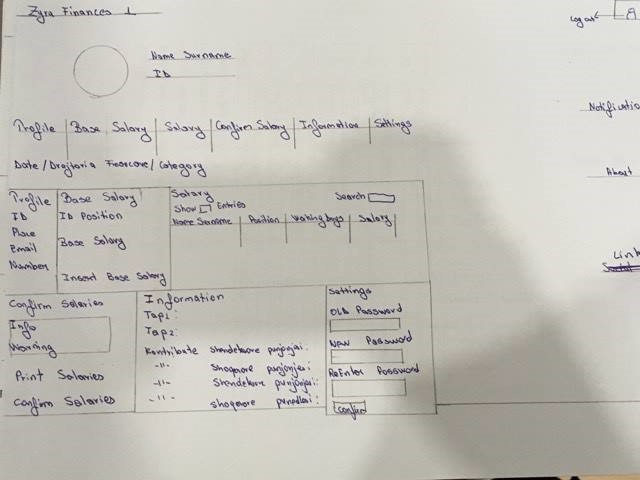 Zyra Finances 1
Log out
Name Surname
ID
Notificatio
Profile Base Salary Salary Confirm Salary Information Settings
Date / Drejtoria Financore / Category
About
Profile
ID
Place
Email
Number
Base Salary
ID Position
Base Salary
Insert Base Salary
Salary
Show Entries Search
Name Surname Position Working Days Salary
Link
Confirm Salaries
Info
Warning
Print Salaries
Confirm Salaries
Information
Tap1:
Tap2:
Kontribute Shendetsore punjonjesi:
-"- Shoqerore punjonjesi:
-"- Shendetsore punjonjesi:
-"- shoqerore punedhesi:
Settings
OLD Password
NEW Password
ReEnter Password
Confirm